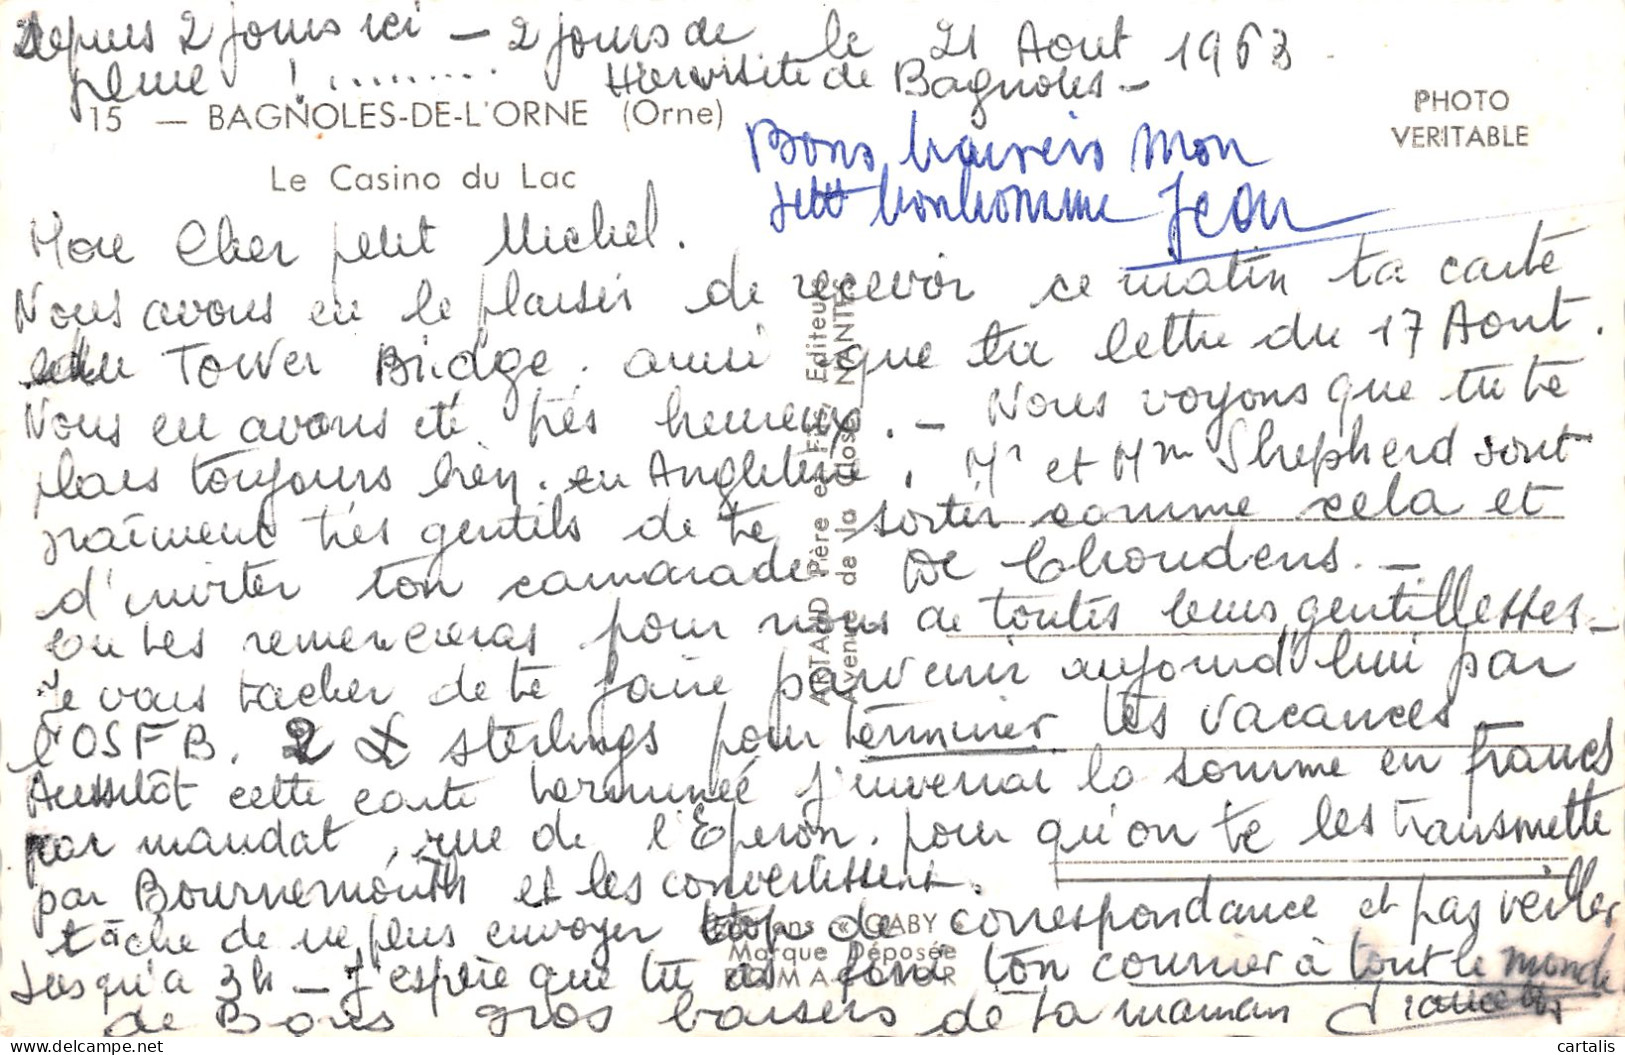 Depuis 2 jours ici – 2 jours de
pluie ! .........
le 21 Aout 1963
Hier visite de Bagnoles –
15 — BAGNOLES-DE-L'ORNE (Orne)
Le Casino du Lac
PHOTO
VERITABLE
Bons baisers mon
petit bonhomme Jean
Mon Cher petit Michel.
Nous avons eu le plaisir de recevoir ce matin ta carte
du Tower Bridge. ainsi que ta lettre du 17 Aout.
Nous en avons été très heureux. – Nous voyons que tu te
plais toujours bien. en Angleterre, Mr et Mm Shepherd sont
vraiment très gentils de te sortir comme cela et
d'inviter ton camarade De Choudens. –
Tu les remercieras pour nous de toutes leurs gentillesses –
Je vais tacher de te faire parvenir aujourd'hui par
l'OSFB. 2 £ sterlings pour terminer tes vacances
Aussitôt cette carte terminée j'enverrai la somme en francs
par mandat, rue de l'Eperon. pour qu'on te les transmette
par Bournemouth et les convertissent.
tâche de ne plus envoyer trop de correspondance et pas veiller
Jusqu'a 3h – J'espère que tu as fini ton courrier à tout le monde
de Bons gros baisers de ta maman
ARTAUD Père et Fils, Editeurs
Avenue de la Close NANTES
Editions « GABY »
Marque Déposée
cartalis